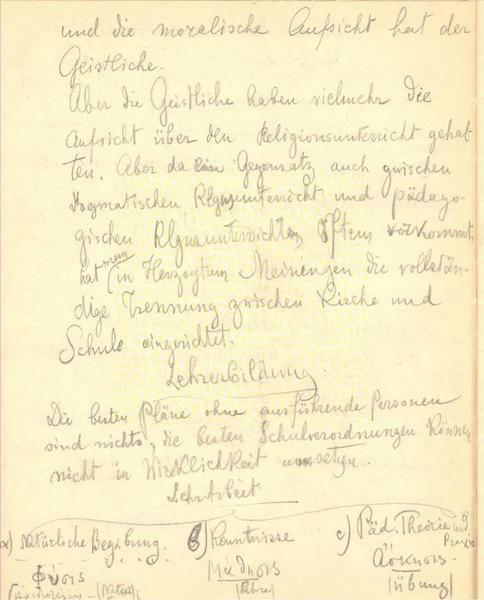 und die moralische Aufsicht hat der
Geistliche.
Aber die Geistliche haben vielmehr die
Aufsicht über den Religionsunterricht gehab
ten. Aber da ein Gegensatz auch zwischen
dogmatischen Rlgnsunterricht und pädago-
gischen Rlgnsunterrichten öftens vorkommt,
hat man in Herzogtum Meiningen die vollstän-
dige Trennung zwischen Kirche und
Schule eingerichtet.
Lehrerbildung.
Die besten Pläne ohne ausführende Personen
sind nichts, die besten Schulverordnungen können
nicht in Wirklichkeit umsetzen.
Lehrarbeit
a) Natürliche Begabung. b) Kenntnisse c) Päd. Theorie und Praxis
Φύσις Μάθησις Άσκησις
(Lehre) (Übung)